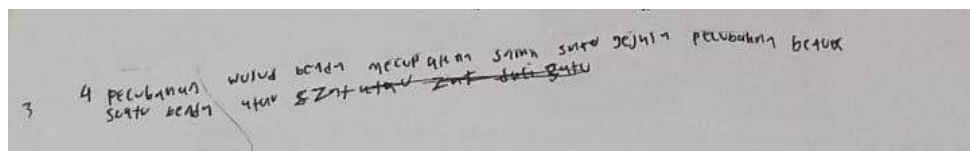 3 4 perubahan wujud benda merupakan salah satu gejala perubahan bentuk
suatu benda atau zat atau zat dari satu